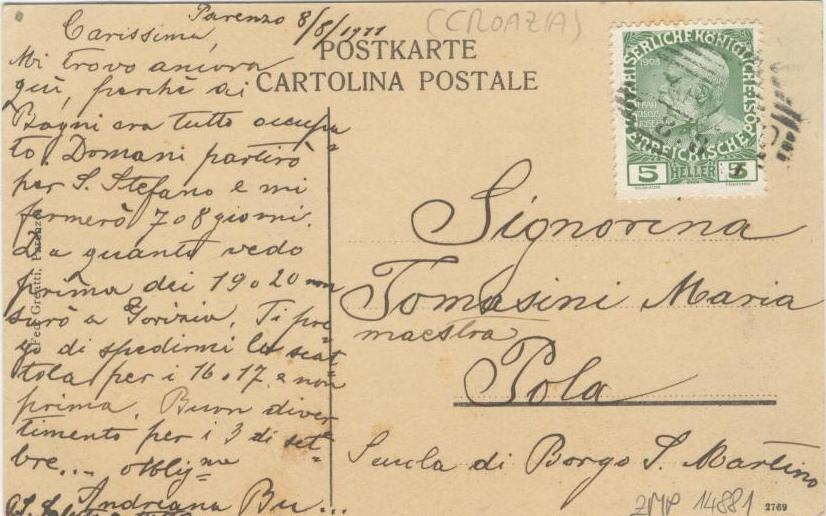 Parenzo 8/8/1911
(CROAZIA)
Carissima,
Mi trovo ancora
quì, perchè ai
Bagni era tutto occupa=
to. Domani partirò
per S. Stefano e mi
fermerò 7 o 8 giorni.
Da quanto vedo
prima dei 19 o 20 non
sarò a Gorizia. Ti pre=
go di spedirmi la scat=
tola per i 16 o 17 e non
prima. Buon diver=
timento per i 3 di set=
bre... obbligma
Andreana Bu...
P.S.
POSTKARTE
CARTOLINA POSTALE
KAISERLICHE KÖNIGLICHE
ÖSTERREICHISCHE POST
1908
5 HELLER 5
Signorina
Tomasini Maria
maestra
Pola
Scuola di Borgo S. Martino
Parenzo
ZMP 14881
2769